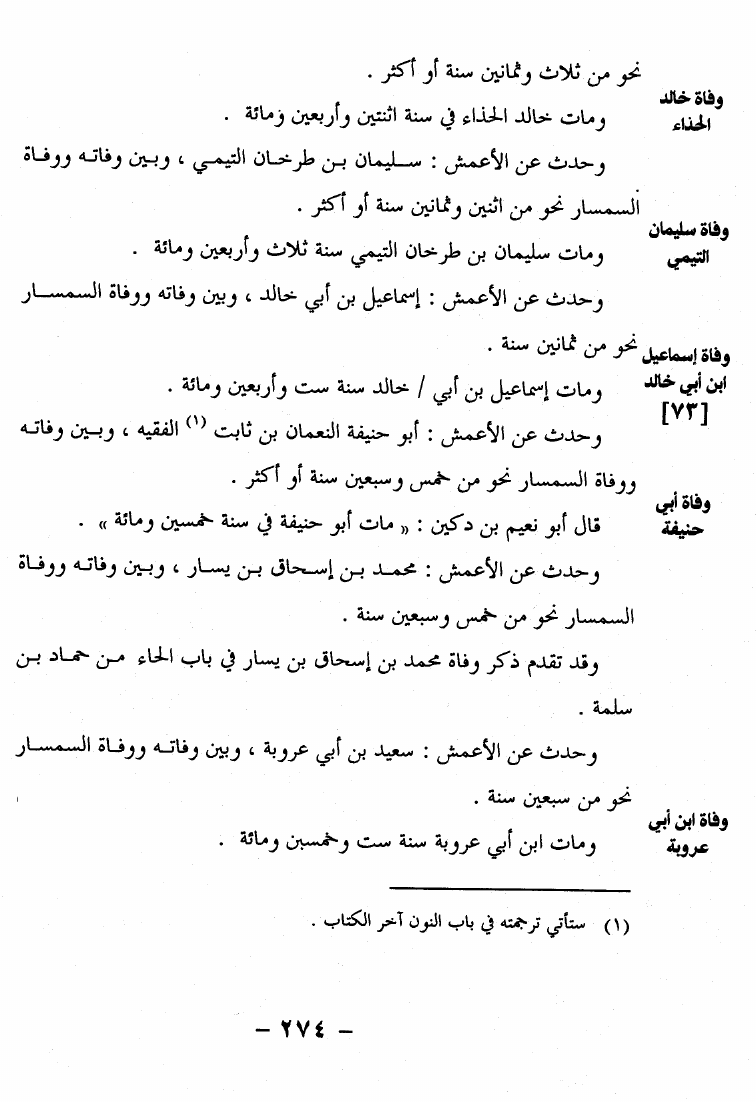 نحو من ثلاث وثمانين سنة أو أكثر .
وفاة خالد
الحذاء
ومات خالد الحذاء في سنة اثنتين وأربعين ومائة .
وحدث عن الأعمش : سليمان بن طرخان التيمي ، وبين وفاته ووفاة
السمسار نحو من اثنين وثمانين سنة أو أكثر .
وفاة سليمان
التيمي
ومات سليمان بن طرخان التيمي سنة ثلاث وأربعين ومائة .
وحدث عن الأعمش : إسماعيل بن أبي خالد ، وبين وفاته ووفاة السمسار
نحو من ثمانين سنة .
وفاة إسماعيل
ابن أبي خالد
[٧٣]
ومات إسماعيل بن أبي / خالد سنة ست وأربعين ومائة .
وحدث عن الأعمش : أبو حنيفة النعمان بن ثابت (١) الفقيه ، وبين وفاته
ووفاة السمسار نحو من خمس وسبعين سنة أو أكثر .
وفاة أبي
حنيفة
قال أبو نعيم بن دكين : « مات أبو حنيفة في سنة خمسين ومائة » .
وحدث عن الأعمش : محمد بن إسحاق بن يسار ، وبين وفاته ووفاة
السمسار نحو من خمس وسبعين سنة .
وقد تقدم ذكر وفاة محمد بن إسحاق بن يسار في باب الحاء من حماد بن
سلمة .
وحدث عن الأعمش : سعيد بن أبي عروبة ، وبين وفاته ووفاة السمسار
نحو من سبعين سنة .
وفاة ابن أبي
عروبة
ومات ابن أبي عروبة سنة ست وخمسين ومائة .
(١) ستأتي ترجمته في باب النون آخر الكتاب .
– ٢٧٤ –